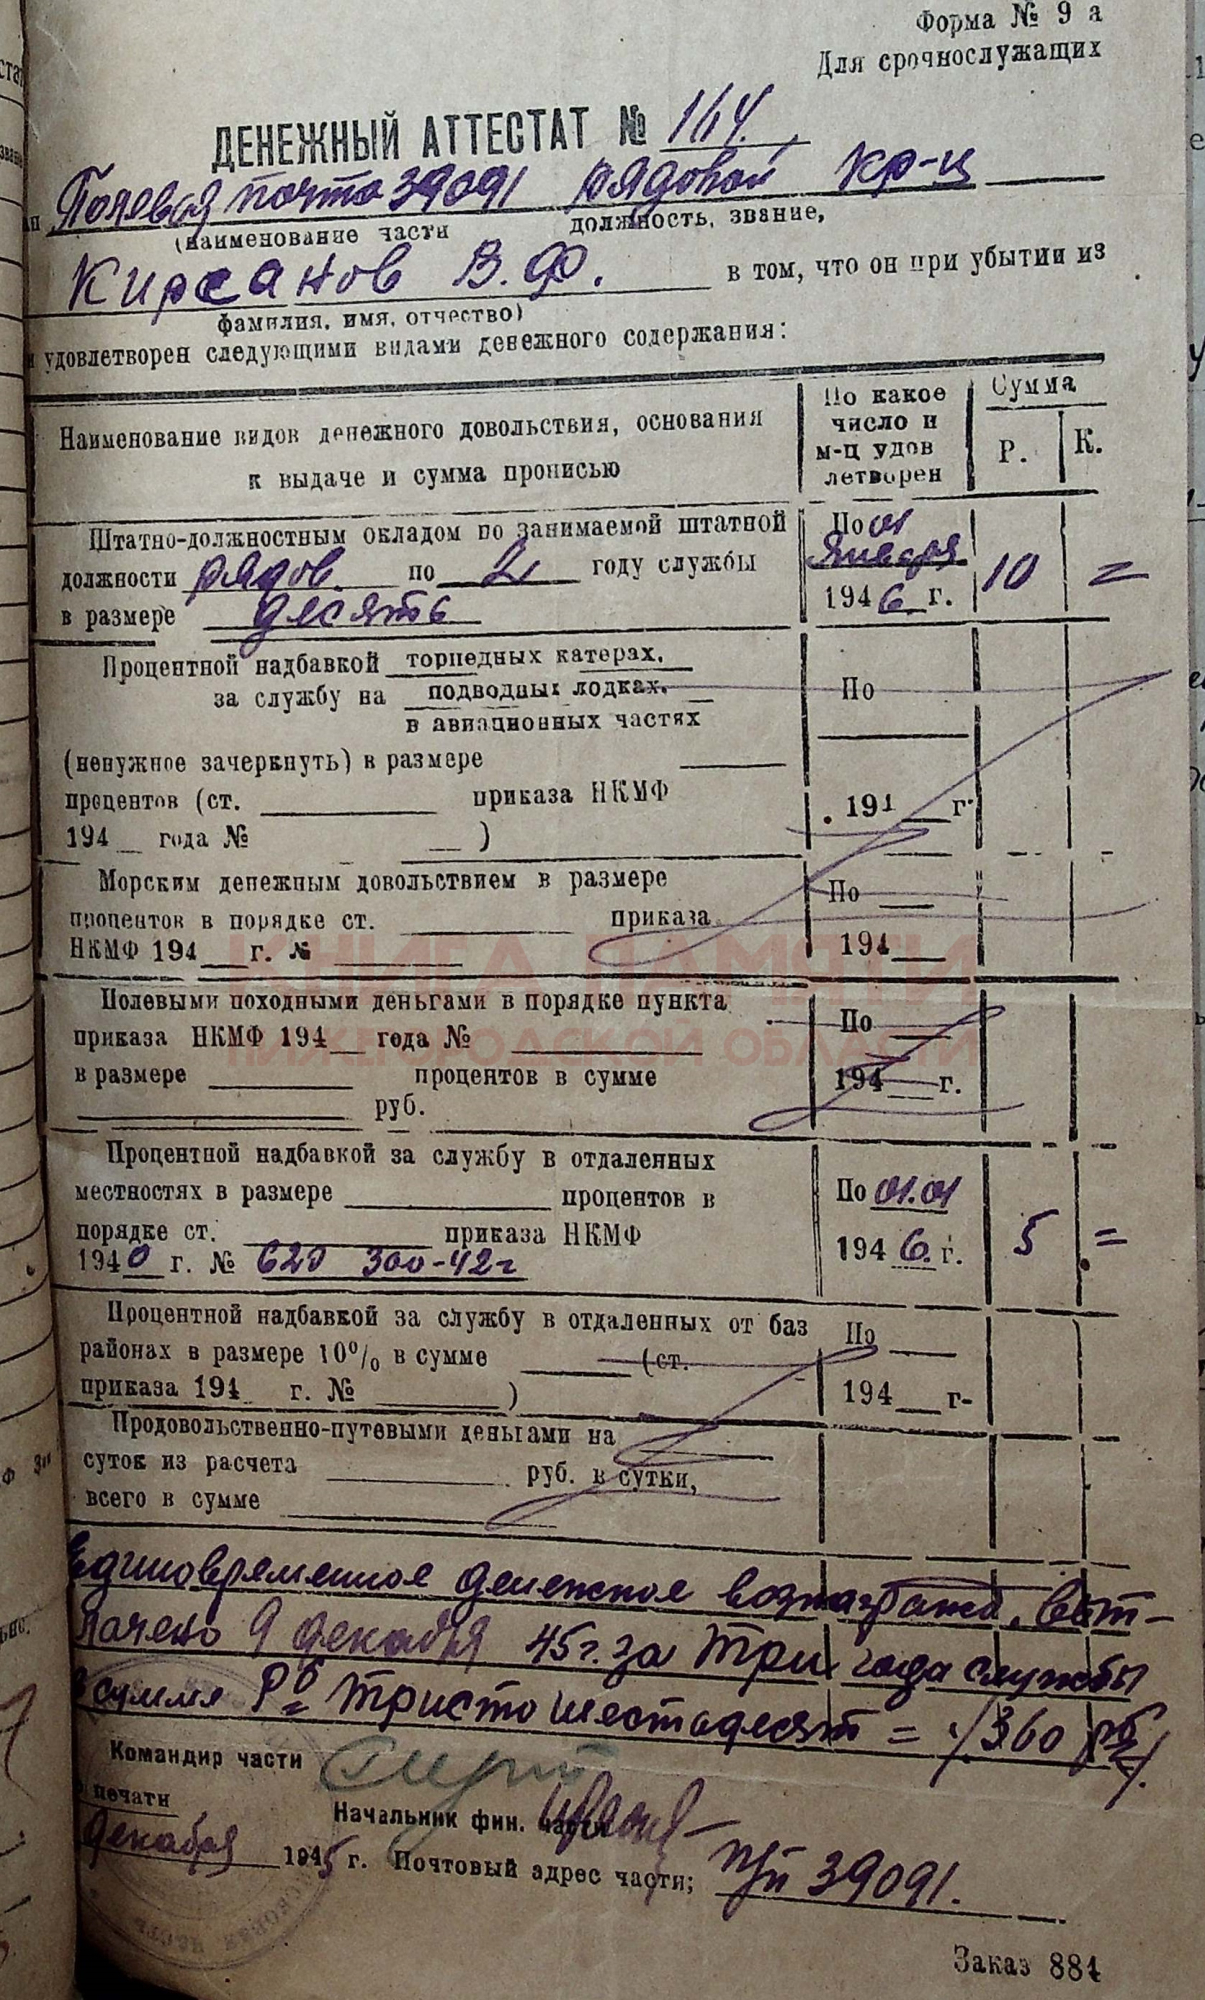 Форма № 9 а
Для срочнослужащих
ДЕНЕЖНЫЙ АТТЕСТАТ № 164.
Полевая почта 39091 рядовой кр-ц
(наименование части должность, звание,
Кирсанов В. Ф. в том, что он при убытии из
фамилия, имя, отчество)
и удовлетворен следующими видами денежного содержания:
Наименование видов денежного довольствия, основания к выдаче и сумма прописью
По какое число и м-ц удовлетворен
Сумма
Р. К.
Штатно-должностным окладом по занимаемой штатной
должности рядов. по 2 году службы
в размере десять
По 01
января
1946 г.
10 =
Процентной надбавкой торпедных катерах.
за службу на подводных лодках.
в авиационных частях
(ненужное зачеркнуть) в размере
процентов (ст. приказа НКМФ
194 года № )
По
194 г.
Морским денежным довольствием в размере
процентов в порядке ст. приказа
НКМФ 194 г. №
По
194
КНИГА ПАМЯТИ
НИЖЕГОРОДСКОЙ ОБЛАСТИ
Полевыми походными деньгами в порядке пункта
приказа НКМФ 194 года №
в размере процентов в сумме
руб.
По
194 г.
Процентной надбавкой за службу в отдаленных
местностях в размере процентов в
порядке ст. приказа НКМФ
1940 г. № 620 300-42г
По 01.01
1946. г.
5 =
Процентной надбавкой за службу в отдаленных от баз
районах в размере 10% в сумме (ст.
приказа 194 г. № )
По
194 г-
Продовольственно-путевыми деньгами на
суток из расчета руб. в сутки,
всего в сумме
Единовременное денежное вознагражд. вып-
лачено 9 декабря 45г. за три года службы
в сумме Рб= триста шестьдесят = /360 рб/.
Командир части
печати
Начальник фин. части
декабря 1945 г. Почтовый адрес части; п/п 39091.
Заказ 884